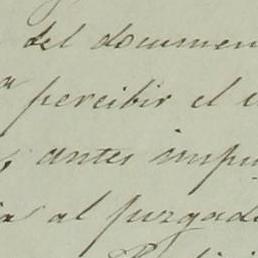 del documen
percibir el
antes impu
al juzgad